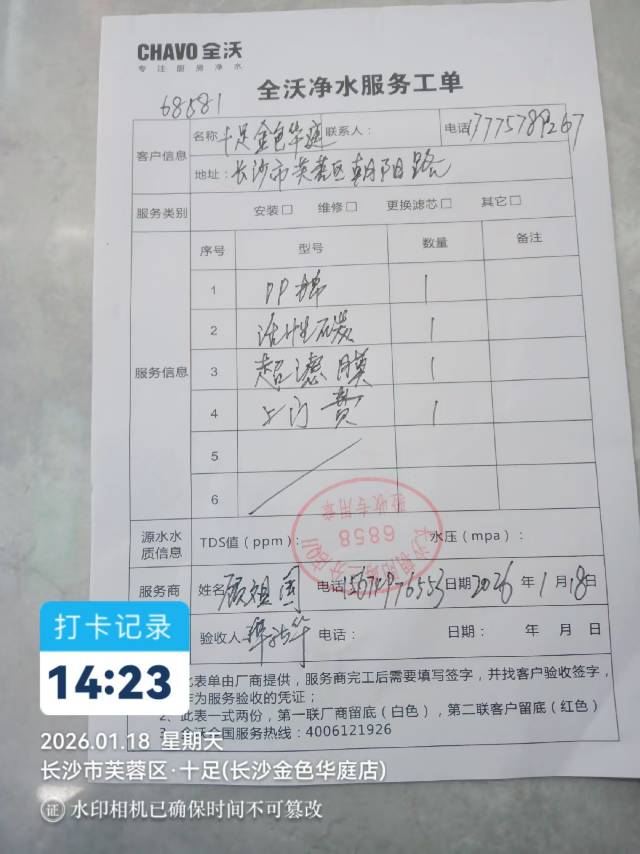 CHAVO 全沃
专注厨房净水
全沃净水服务工单
68581
客户信息
名称 十足金色华庭 联系人： 电话 17775789267
地址: 长沙市芙蓉区朝阳路
服务类别 安装□ 维修□ 更换滤芯□ 其它□
服务信息
序号 型号 数量 备注
1 PP棉 1
2 活性碳 1
3 超滤膜 1
4 上门费 1
5
6
源水水质信息 TDS值（ppm）： 水压（mpa）：
6858
验收专用章
服务商 姓名 电话 日期 2026 年 1 月 18 日
验收人 电话： 日期： 年 月 日
此表单由厂商提供，服务商完工后需要填写签字，并找客户验收签字，
作为服务验收的凭证；
2、此表一式两份，第一联厂商留底（白色），第二联客户留底（红色）
3、全沃全国服务热线：4006121926
打卡记录
14:23
2026.01.18 星期天
长沙市芙蓉区·十足(长沙金色华庭店)
证 水印相机已确保时间不可篡改